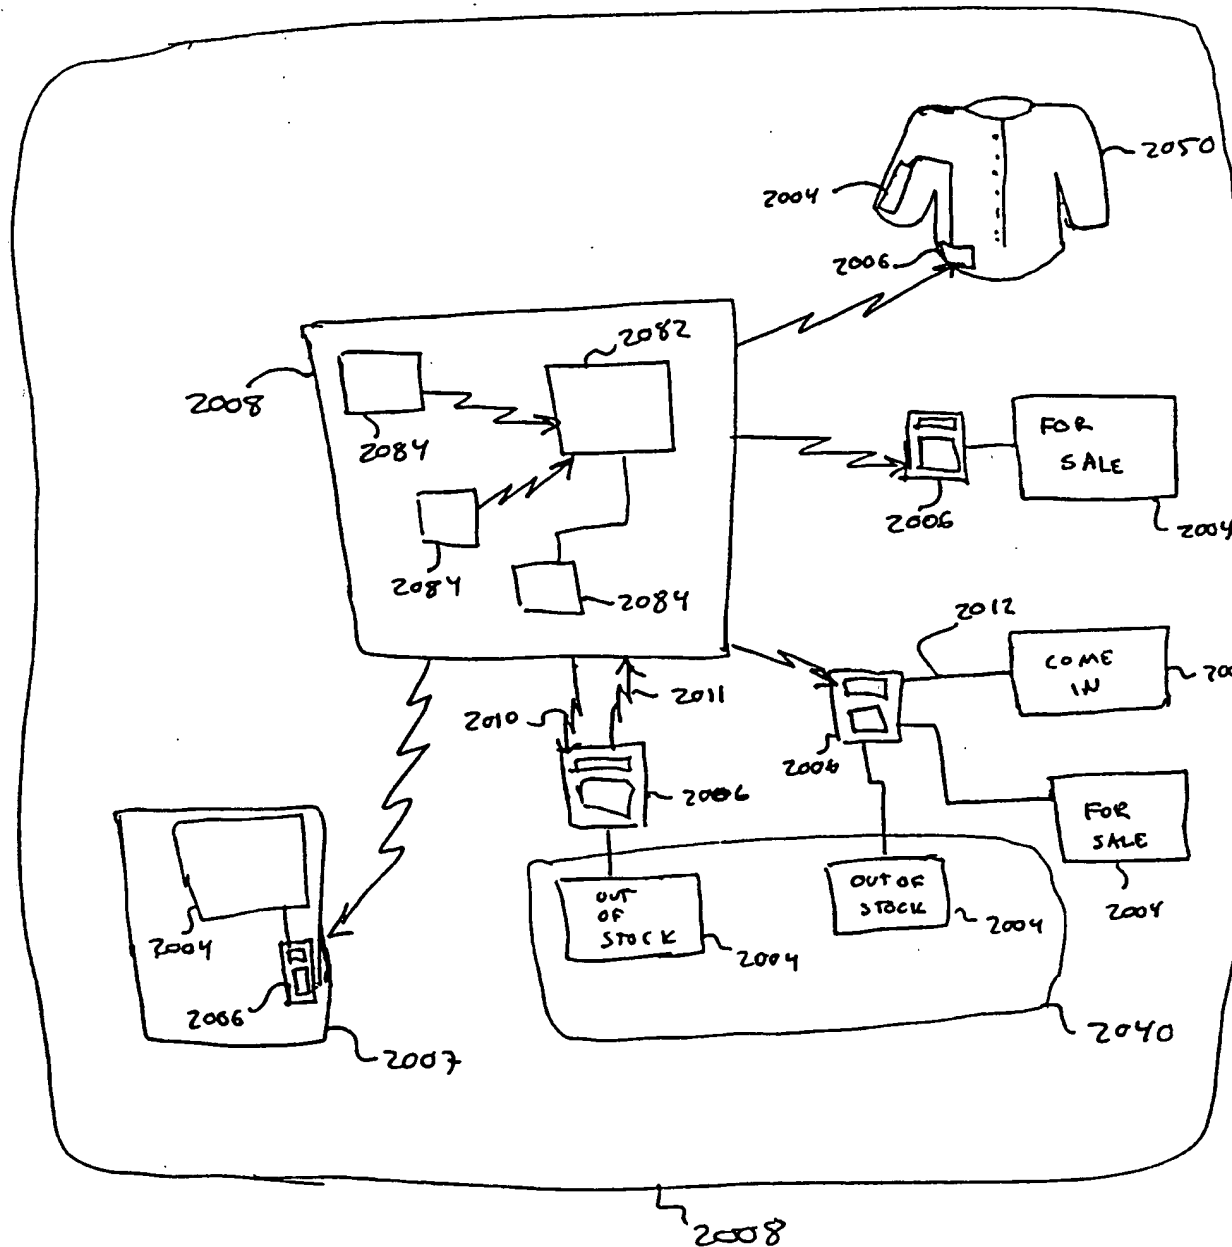 2050
2004
2006
2082
2008
2084
FOR
SALE
2006
2004
2084
2084
2012
COME
IN
200
2011
2010
2006
2006
FOR
SALE
2004
OUT
OF
STOCK
OUT OF
STOCK
2004
2004
2004
2006
2007
2040
2008